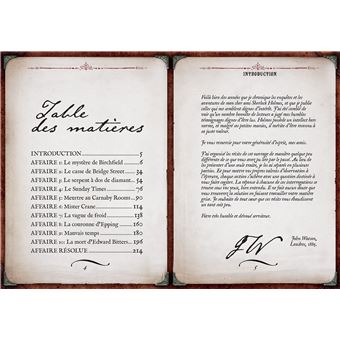 Table
des matières
INTRODUCTION 5
AFFAIRE 1: Le mystère de Birchfield 6
AFFAIRE 2: Le casse de Bridge Street 34
AFFAIRE 3: Le serpent à dos de diamant 54
AFFAIRE 4: Le Sunday Times 76
AFFAIRE 5: Meurtre au Carnaby Rooms 90
AFFAIRE 6: Mister Crane 114
AFFAIRE 7: La vague de froid 138
AFFAIRE 8: La couronne d'Epping 160
AFFAIRE 9: Mauvais temps 180
AFFAIRE 10: La mort d'Edward Bitters 196
AFFAIRE RÉSOLUE 214
4
INTRODUCTION
Voilà bien des années que je chronique les enquêtes et les
aventures de mon cher ami Sherlock Holmes, et que je publie
celles qui me semblent dignes d'intérêt. J'ai été comblé de
voir qu'un nombre honnête de lecteurs a jugé mes humbles
témoignages dignes d'être lus. Holmes possède un intellect hors
norme, et malgré sa petite manies, il mérite d'être reconnu à
sa juste valeur.
Je vous remercie pour votre générosité d'esprit, mes amis.
J'ai organisé les récits de cet ouvrage de manière quelque peu
différente de ce que vous avez pu lire par le passé. Au lieu de
les présenter d'une seule traite, je les ai scindés en plusieurs
parties. Et pour mettre vos propres talents d'observation à
l'épreuve, chaque section s'achève avec une question destinée à
vous faire cogiter. La réponse à chacune de ces interrogations se
trouve sous vos yeux, bien entendu. Il ne fait aucun doute que
vous trouverez la solution en faisant preuve d'un peu de jugeote.
Je souhaite de tout cœur que ces récits vous divertissent
un tant soit peu.
Votre très humble et dévoué serviteur.
JW
John Watson,
Londres, 1885.
5